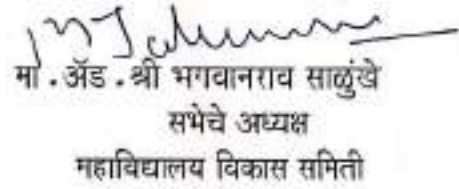 मा .ॲड .श्री भगवानराव साळुंखे
सभेचे अध्यक्ष
महाविद्यालय विकास समिती